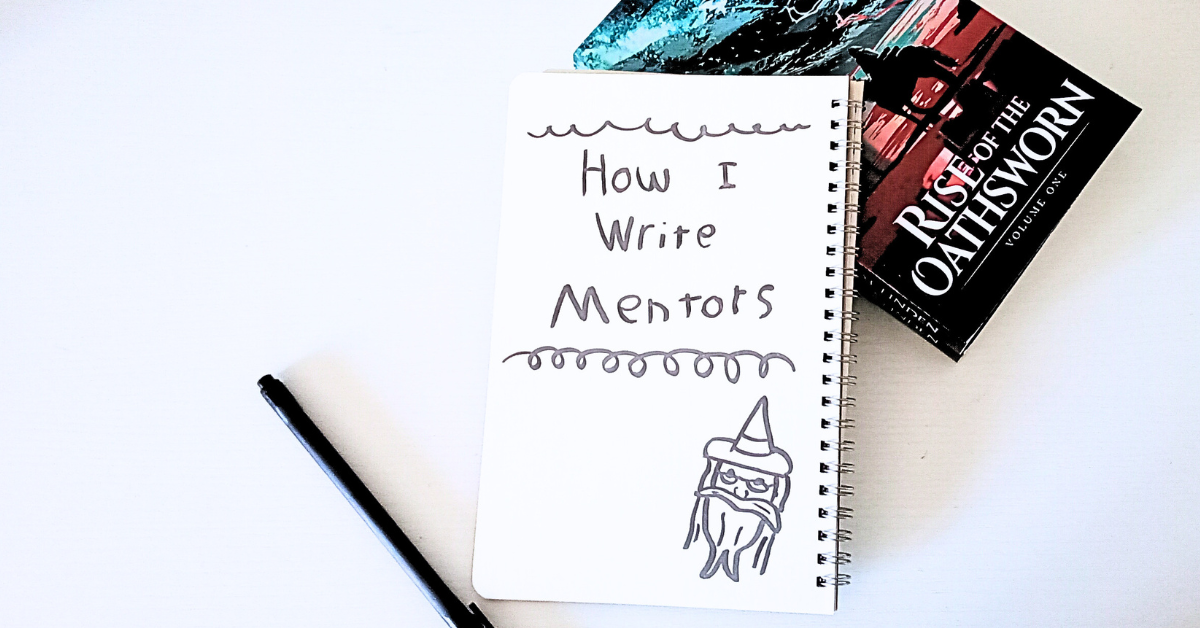 How I
Write
Mentors
RISE OF THE
OATHSWORN
VOLUME ONE